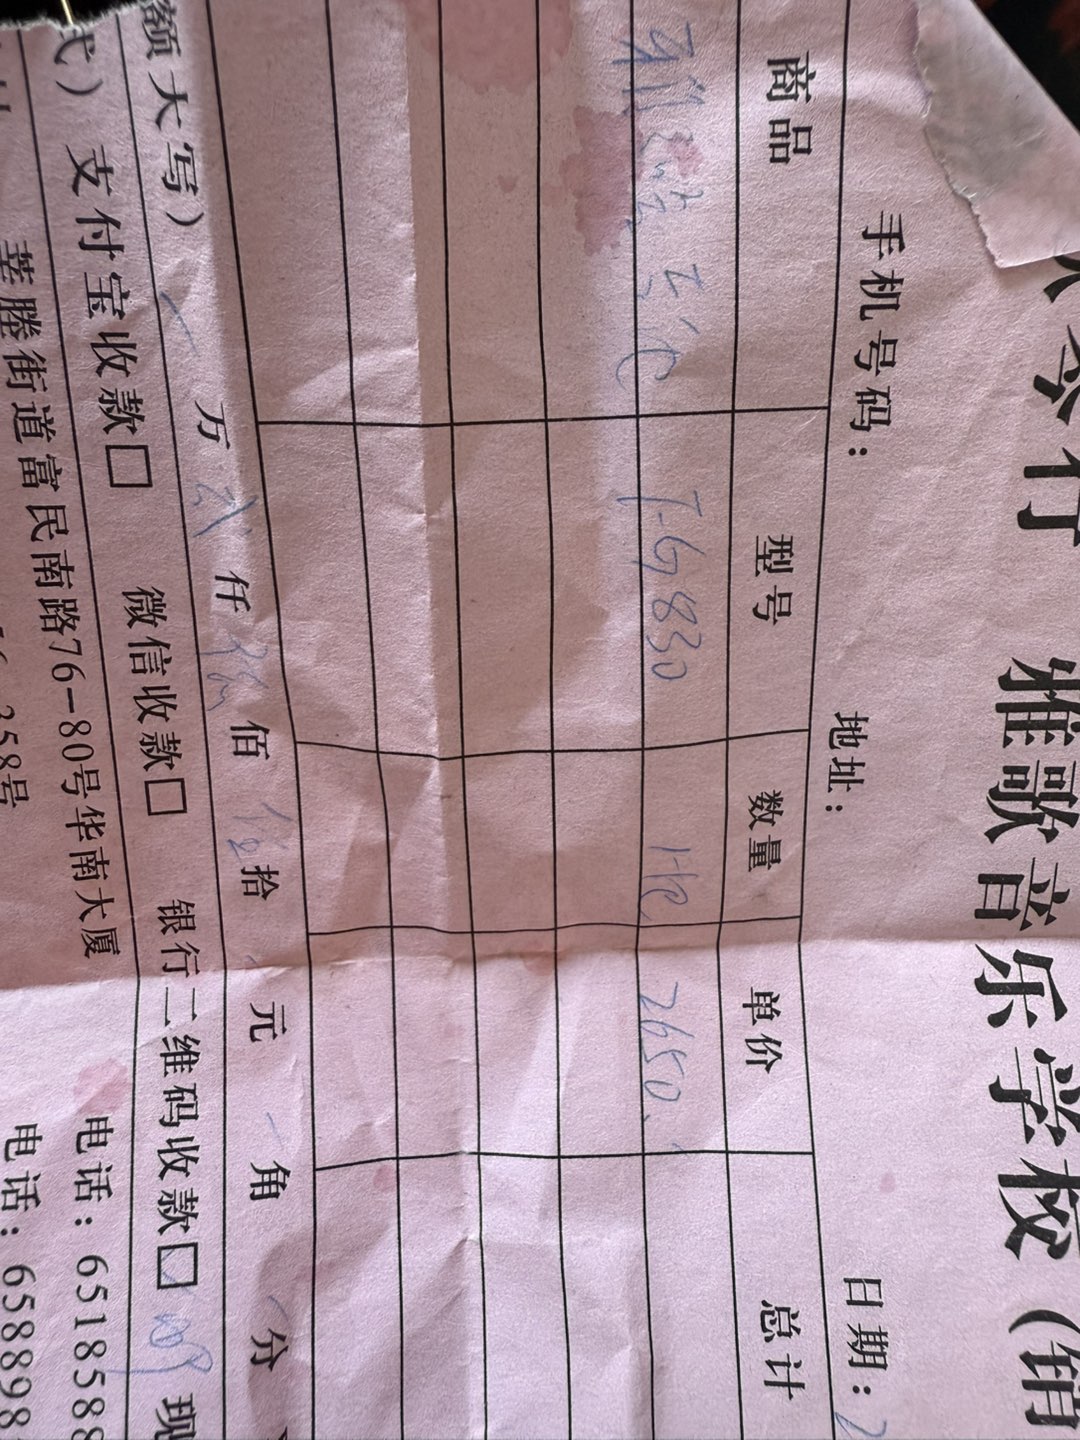 琴行 雅歌音乐学校（销
手机号码： 地址： 日期：2
商品 型号 数量 单价 总计
T-G830 2650.
额大写） 万 贰 仟 陆 佰 伍 拾 元 角 分
式）支付宝收款□ 微信收款□ 银行二维码收款□ 现
莘塍街道富民南路76-80号华南大厦 电话：6518588
358号 电话：658898